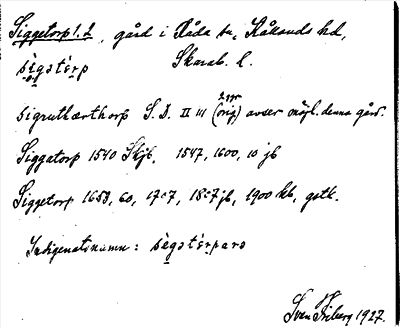 Siggetorp 1.2, gård i Råda sn, Kållands hd,
sìgstè́rp Skarab. l.
Sigruthærthorp S.D. II 111 (orig) avser möjl. denna gård.
Siggatorp 1540 Skjb, 1547, 1600, 10 jb
Siggetorp 1653, 60, 1707, 1857 jb, 1900 kb, gstk.
Indigenatsnamn: sìgstè́rpara
Sven Friberg 1927.